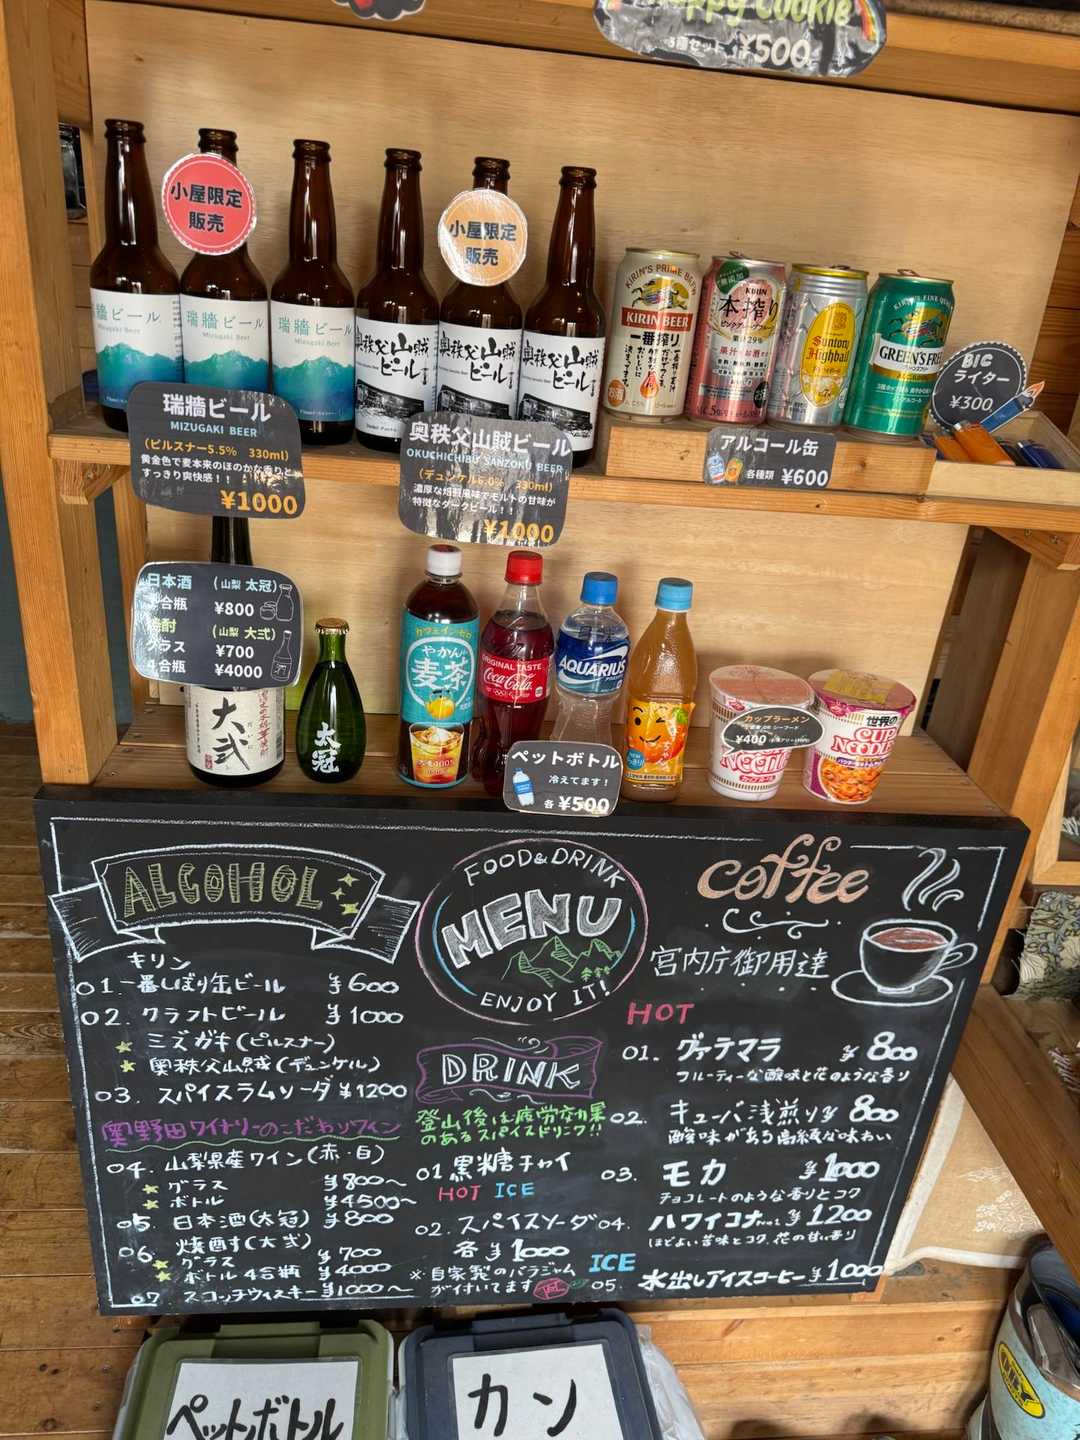 Happy Cookie
3種セット ¥500
小屋限定
販売
小屋限定
販売
瑞牆ビール
Mizugaki Beer
瑞牆ビール
Mizugaki Beer
瑞牆ビール
Mizugaki Beer
奥秩父山賊
ビール
奥秩父山賊
ビール
奥秩父山賊
ビール
KIRIN'S PRIME BREW
KIRIN BEER
一番搾り
無添加
KIRIN
本搾り
ピンクグレープフルーツ
Suntory
Highball
GREEN'S FREE
BIC
ライター
¥300
瑞牆ビール
MIZUGAKI BEER
(ピルスナー5.5% 330ml)
黄金色で麦本来のほのかな香りと
すっきり爽快感！！
¥1000
奥秩父山賊ビール
OKUCHICHIBU SANZOKU BEER
(デュンケル6.0% 330ml)
濃厚な焙煎風味でモルトの甘味が
特徴なダークビール！！
¥1000
アルコール缶
各種類 ¥600
日本酒 (山梨 太冠)
合瓶 ¥800
焼酎 (山梨 大弐)
グラス ¥700
4合瓶 ¥4000
大弐
太冠
カフェインゼロ
やかんの
麦茶
ORIGINAL TASTE
Coca-Cola
AQUARIUS
ペットボトル
冷えてます！
各 ¥500
カップラーメン
¥400
世界の
CUP
NOODLES
ALCOHOL
キリン
01.一番しぼり缶ビール ¥600
02. クラフトビール ¥1000
★ ミズガキ(ピルスナー)
★ 奥秩父山賊(デュンケル)
03. スパイスラムソーダ ¥1200
奥野田ワイナリーのこだわりワイン
04. 山梨県産ワイン(赤・白)
★ グラス ¥800〜
★ ボトル ¥4500〜
05. 日本酒(太冠) ¥800
06. 焼酎(大弐)
★ グラス ¥700
★ ボトル 4合瓶 ¥4000
07. スコッチウィスキー ¥1000〜
FOOD & DRINK
MENU
ENJOY IT!
DRINK
登山後は疲労効果
のあるスパイスドリンク!!
01 黒糖チャイ
HOT ICE
02. スパイスソーダ
各 ¥1000
※自家製のバラジャム
が付いてます
coffee
宮内庁御用達
HOT
01. グァテマラ ¥800
フルーティーな酸味と花のような香り
02. キューバ浅煎り ¥800
酸味がある高級な味わい
03. モカ ¥1000
チョコレートのような香りとコク
04. ハワイコナ No.1 ¥1200
ほどよい苦味とコク、花の甘い香り
ICE
05. 水出しアイスコーヒー ¥1000
ペットボトル
カン